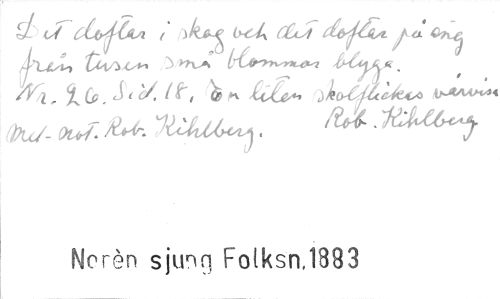 Det doftar i skog och det doftar på äng
från tusen små blommor blyga.
Nr. 26. Sid. 18. En liten skolflickas vårvisa
med not. Rob. Kihlberg. Rob. Kihlberg
Norèn sjung Folksn, 1883